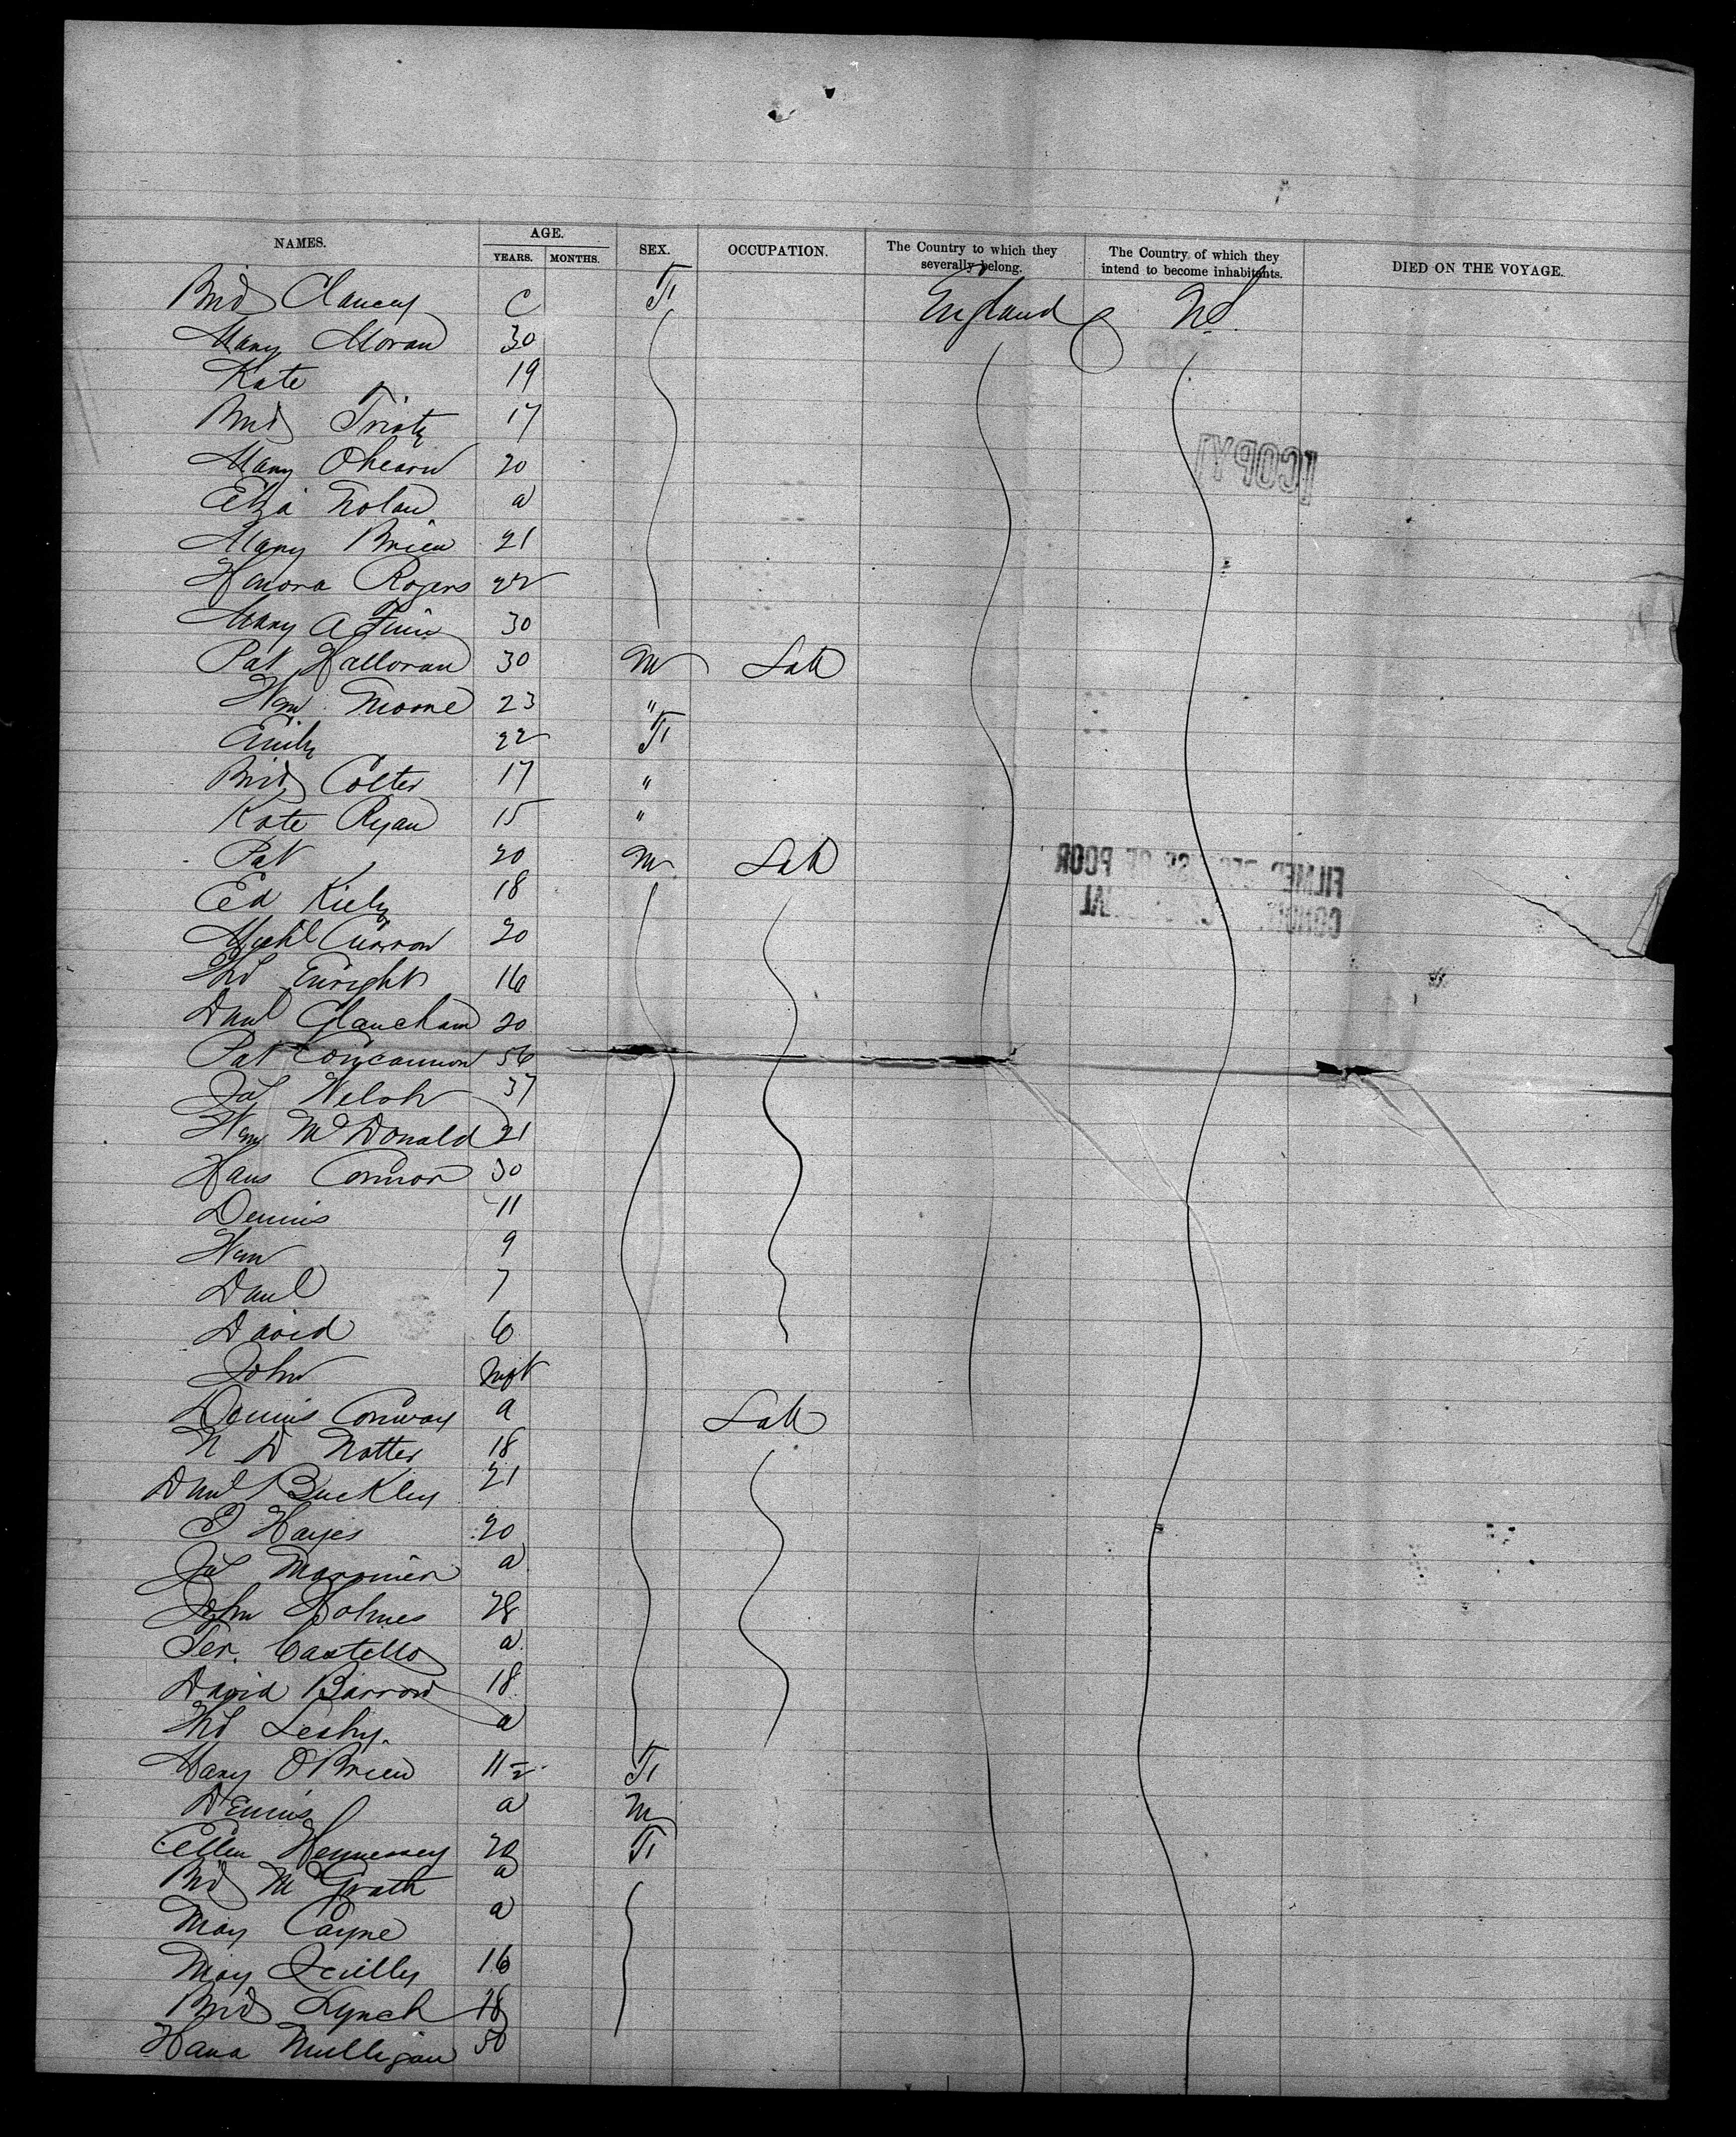 NAMES. AGE. SEX. OCCUPATION. The Country to which they severally belong. The Country of which they intend to become inhabitants. DIED ON THE VOYAGE.
YEARS. MONTHS.
Brid Clancy C F England US
Mary Moran 30
Kate 19
Brid 17
Mary Ohearn 20
Eliza Nolan a
Mary Brien 21
Honora Rogers 22
Mary A Finn 30
Pat Halloran 30 M Lab
Wm Moore 23 "
Emily 22 F
Brid Colter 17 "
Kate Ryan 15 "
Pat 20 M Lab
Ed Kiely 18
Michl Curran 20
Enright 16
Danl 20
Pat Concannon 56
Jas Welsh 37
Wm McDonald 21
Hans Connor 30
Dennis 11
Wm 9
Danl 7
David 6
John Inft
Dennis Conway a Lab
N D Notter 18
Danl Buckley 21
P Hayes 20
Jas a
John Holmes 28
Ter. Castello a
David Barron 18
Leahy. a
Mary O'Brien 11 F
Dennis a M
Ellen Hennessey 20 F
Brid McGrath a
May Cayne a
May 16
Brid Lynch 18
Hana Mulligan 50
[COPY]
FILMED OF POOR